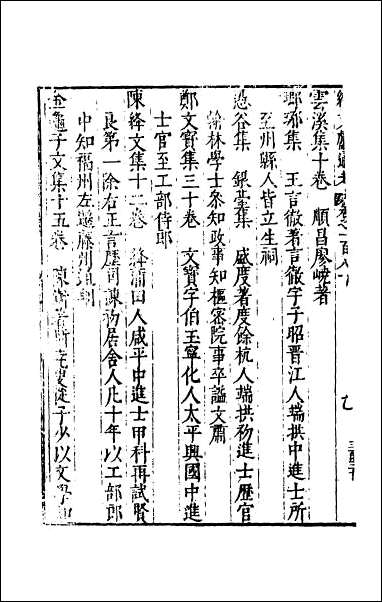 續文獻通考 卷之一百八十
雲溪集十卷 順昌廖峣著
瑯琊集 王言徹著言徹字子昭晉江人端拱中進士所
至州縣人皆立生祠
愚谷集 銀臺集 盛度著度餘杭人端拱初進士歷官
翰林學士參知政事知樞密院事卒謚文肅
鄭文寶集三十卷 文寶字伯玉寧化人太平興國中進
士官至工部侍郎
陳絳文集十二卷 絳莆田人咸平中進士甲科再試賢
良第一除右正言歷司諫起居舍人凡十年以工部郎
中知福州左遷藤州通判
金龜子文集十五卷 陳 著 堯叟從子少以文學